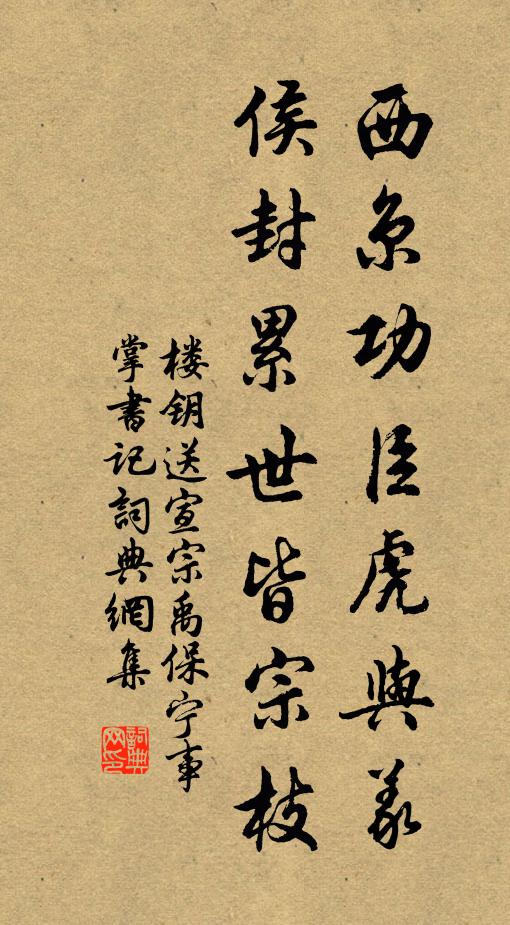 西京功臣虎與義
侯封累世皆宗枝
楼钥送宣宗禹保宁事
掌書记詞典網集
詞典网印